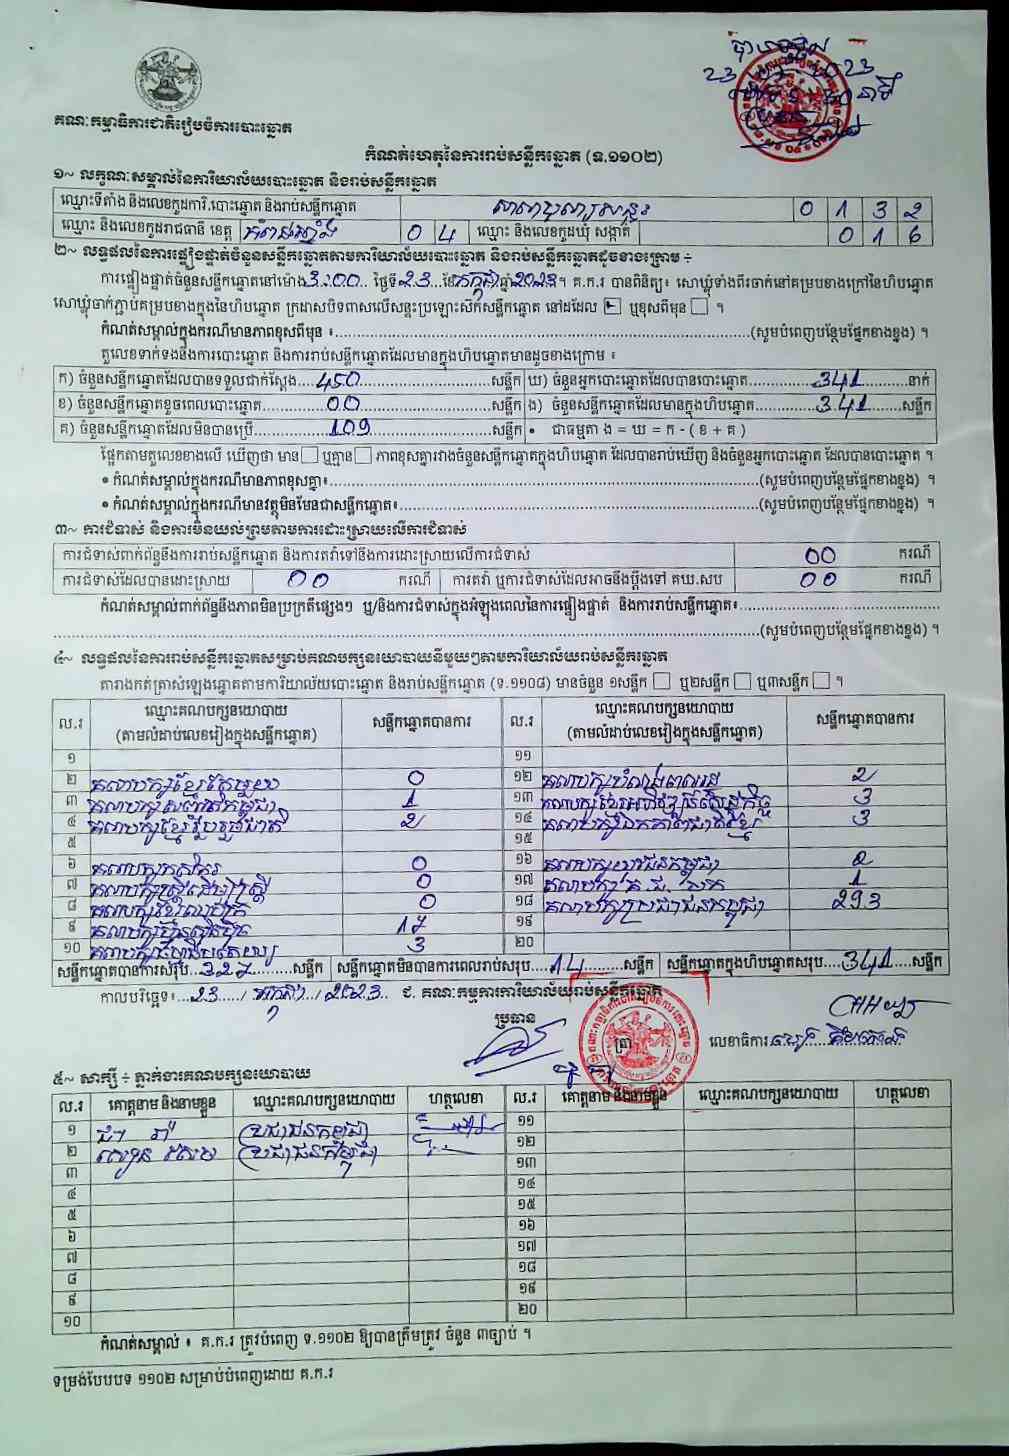 គណៈកម្មាធិការជាតិរៀបចំការបោះឆ្នោត
កំណត់ហេតុនៃការរាប់សន្លឹកឆ្នោត (ទ.១១០២)
១~ លក្ខណៈសម្គាល់នៃការិយាល័យបោះឆ្នោត និងរាប់សន្លឹកឆ្នោត
ឈ្មោះទីតាំង និងលេខកូដការិ.បោះឆ្នោត និងរាប់សន្លឹកឆ្នោត 0 1 3 2
ឈ្មោះ និងលេខកូដរាជធានី ខេត្ត កំពង់ឆ្នាំង 0 4 ឈ្មោះ និងលេខកូដឃុំ សង្កាត់ 0 1 6
២~ លទ្ធផលនៃការផ្ទៀងផ្ទាត់ចំនួនសន្លឹកឆ្នោតតាមការិយាល័យបោះឆ្នោត និងរាប់សន្លឹកឆ្នោតដូចខាងក្រោម ÷
ការផ្ទៀងផ្ទាត់ចំនួនសន្លឹកឆ្នោតនៅម៉ោង 3:00 ថ្ងៃទី 23 ខែ កក្កដា ឆ្នាំ 2023 ។ គ.ក.រ បានពិនិត្យ៖ សោឃ្លុំទាំងពីរចាក់នៅគម្របខាងក្រៅនៃហិបឆ្នោត
សោឃ្លុំចាក់ភ្ជាប់គម្របខាងក្នុងនៃហិបឆ្នោត ក្រដាសបិទពាសលើសន្ទះប្រឡោះស៊កសន្លឹកឆ្នោត នៅដដែល ឬខុសពីមុន ។
កំណត់សម្គាល់ក្នុងករណីមានភាពខុសពីមុន ៖ (សូមបំពេញបន្ថែមផ្នែកខាងខ្នង) ។
តួលេខទាក់ទងនឹងការបោះឆ្នោត និងការរាប់សន្លឹកឆ្នោតដែលមានក្នុងហិបឆ្នោតមានដូចខាងក្រោម ៖
ក) ចំនួនសន្លឹកឆ្នោតដែលបានទទួលជាក់ស្តែង 450 សន្លឹក ឃ) ចំនួនអ្នកបោះឆ្នោតដែលបានបោះឆ្នោត 341 នាក់
ខ) ចំនួនសន្លឹកឆ្នោតខូចពេលបោះឆ្នោត 00 សន្លឹក ង) ចំនួនសន្លឹកឆ្នោតដែលមានក្នុងហិបឆ្នោត 341 សន្លឹក
គ) ចំនួនសន្លឹកឆ្នោតដែលមិនបានប្រើ 109 សន្លឹក • ជាធម្មតា ង = ឃ = ក - ( ខ + គ )
ផ្អែកតាមតួលេខខាងលើ ឃើញថា មាន ឬគ្មាន ភាពខុសគ្នារវាងចំនួនសន្លឹកឆ្នោតក្នុងហិបឆ្នោត ដែលបានរាប់ឃើញ និងចំនួនអ្នកបោះឆ្នោត ដែលបានបោះឆ្នោត ។
• កំណត់សម្គាល់ក្នុងករណីមានភាពខុសគ្នា៖ (សូមបំពេញបន្ថែមផ្នែកខាងខ្នង) ។
• កំណត់សម្គាល់ក្នុងករណីមានវត្ថុមិនមែនជាសន្លឹកឆ្នោត៖ (សូមបំពេញបន្ថែមផ្នែកខាងខ្នង) ។
៣~ ការជំទាស់ និងការមិនយល់ព្រមតាមការដោះស្រាយលើការជំទាស់
ការជំទាស់ពាក់ព័ន្ធនឹងការរាប់សន្លឹកឆ្នោត និងការតវ៉ាទៅនឹងការដោះស្រាយលើការជំទាស់ 00 ករណី
ការជំទាស់ដែលបានដោះស្រាយ 00 ករណី ការតវ៉ា ឬការជំទាស់ដែលអាចនឹងប្តឹងទៅ គឃ.សប 00 ករណី
កំណត់សម្គាល់ពាក់ព័ន្ធនឹងភាពមិនប្រក្រតីផ្សេងៗ ឬ/និងការជំទាស់ក្នុងអំឡុងពេលនៃការផ្ទៀងផ្ទាត់ និងការរាប់សន្លឹកឆ្នោត៖
(សូមបំពេញបន្ថែមផ្នែកខាងខ្នង) ។
៤~ លទ្ធផលនៃការរាប់សន្លឹកឆ្នោតសម្រាប់គណបក្សនយោបាយនីមួយៗតាមការិយាល័យរាប់សន្លឹកឆ្នោត
តារាងកត់ត្រាសំឡេងឆ្នោតតាមការិយាល័យបោះឆ្នោត និងរាប់សន្លឹកឆ្នោត (ទ.១១០៨) មានចំនួន ១សន្លឹក ឬ២សន្លឹក ឬ៣សន្លឹក ។
ល.រ ឈ្មោះគណបក្សនយោបាយ (តាមលំដាប់លេខរៀងក្នុងសន្លឹកឆ្នោត) សន្លឹកឆ្នោតបានការ ល.រ ឈ្មោះគណបក្សនយោបាយ (តាមលំដាប់លេខរៀងក្នុងសន្លឹកឆ្នោត) សន្លឹកឆ្នោតបានការ
១ ១១
២ គណបក្សខ្មែរតែមួយ 0 ១២ 2
៣ 1 ១៣ 3
៤ គណបក្សខ្មែររួបរួមជាតិ 2 ១៤ គណបក្សឯកភាពជាតិខ្មែរ 3
៥ ១៥
៦ គណបក្សកសិករ 0 ១៦ គណបក្សយុវជនកម្ពុជា 2
៧ គណបក្សស្ត្រីដើម្បីស្ត្រី 0 ១៧ 1
៨ 0 ១៨ គណបក្សប្រជាជនកម្ពុជា 293
៩ គណបក្សហ៊្វុនស៊ិនប៉ិច 17 ១៩
១០ 3 ២០
សន្លឹកឆ្នោតបានការសរុប 327 សន្លឹក សន្លឹកឆ្នោតមិនបានការពេលរាប់សរុប 14 សន្លឹក សន្លឹកឆ្នោតក្នុងហិបឆ្នោតសរុប 341 សន្លឹក
កាលបរិច្ឆេទ៖ 23 / កក្កដា / 2023 ជ. គណៈកម្មការការិយាល័យរាប់សន្លឹកឆ្នោត
ប្រធាន
(ត្រា)
លេខាធិការ
៥~ សាក្សី ÷ ភ្នាក់ងារគណបក្សនយោបាយ
ល.រ គោត្តនាម និងនាមខ្លួន ឈ្មោះគណបក្សនយោបាយ ហត្ថលេខា ល.រ គោត្តនាម និងនាមខ្លួន ឈ្មោះគណបក្សនយោបាយ ហត្ថលេខា
១ ប្រជាជនកម្ពុជា ១១
២ ប្រជាជនកម្ពុជា ១២
៣ ១៣
៤ ១៤
៥ ១៥
៦ ១៦
៧ ១៧
៨ ១៨
៩ ១៩
១០ ២០
កំណត់សម្គាល់ ៖ គ.ក.រ ត្រូវបំពេញ ទ.១១០២ ឱ្យបានត្រឹមត្រូវ ចំនួន ៣ច្បាប់ ។
ទម្រង់បែបបទ ១១០២ សម្រាប់បំពេញដោយ គ.ក.រ